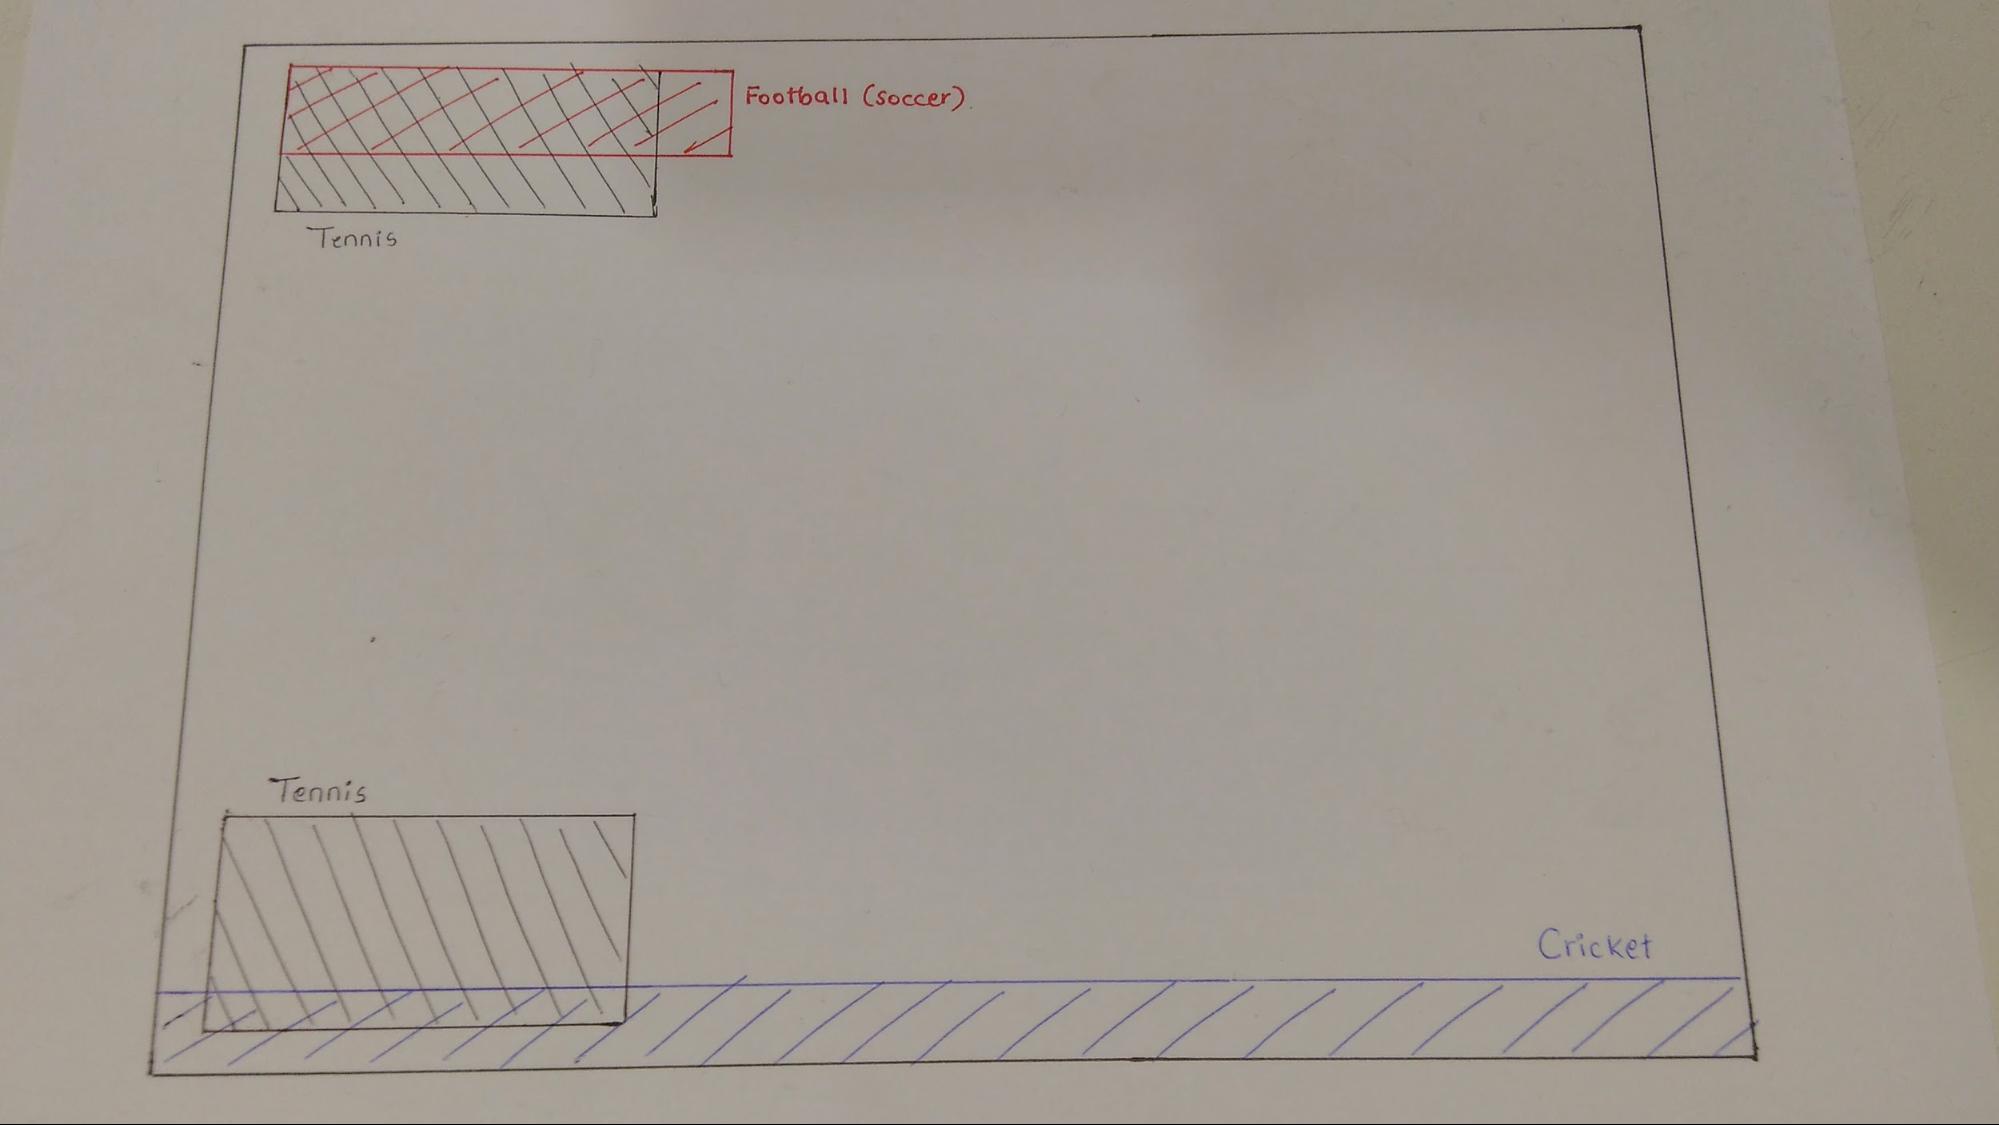 Football (soccer)
Tennis
Tennis
Cricket